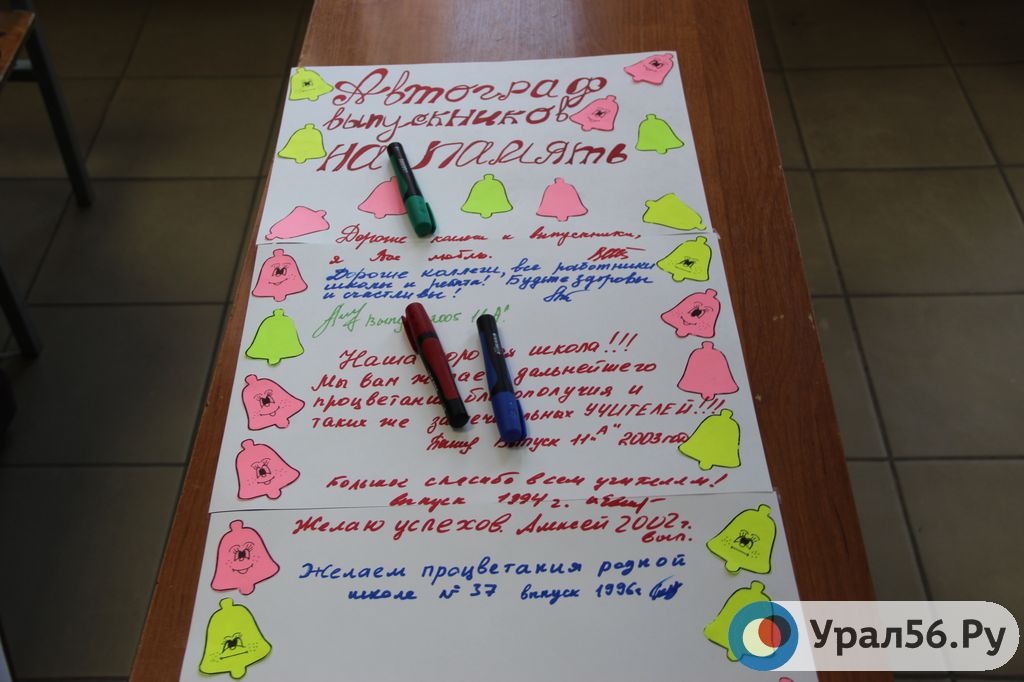 Автограф
выпускников
на память
Дорогие и выпускники,
я Вас люблю.
Дорогие коллеги, все работники
школы и ребята! Будьте здоровы
и счастливы!
Выпуск 2005 11 "А"
Наша школа!!!
Мы вам дальнейшего
и
таких же УЧИТЕЛЕЙ!!!
Выпуск 11 "А" 2003 год
Большое спасибо всем учителям!
выпуск 1994 г.
Желаю успехов. Алексей 2002 г.
вып.
Желаем процветания родной
школе № 37 выпуск 1996г
Урал56.Ру